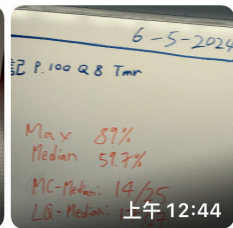 6-5-2024
記 P.100 Q8 Tmr
Max 89%
Median 59.7%
MC-Median: 14/25
LQ-Median:
上午 12:44